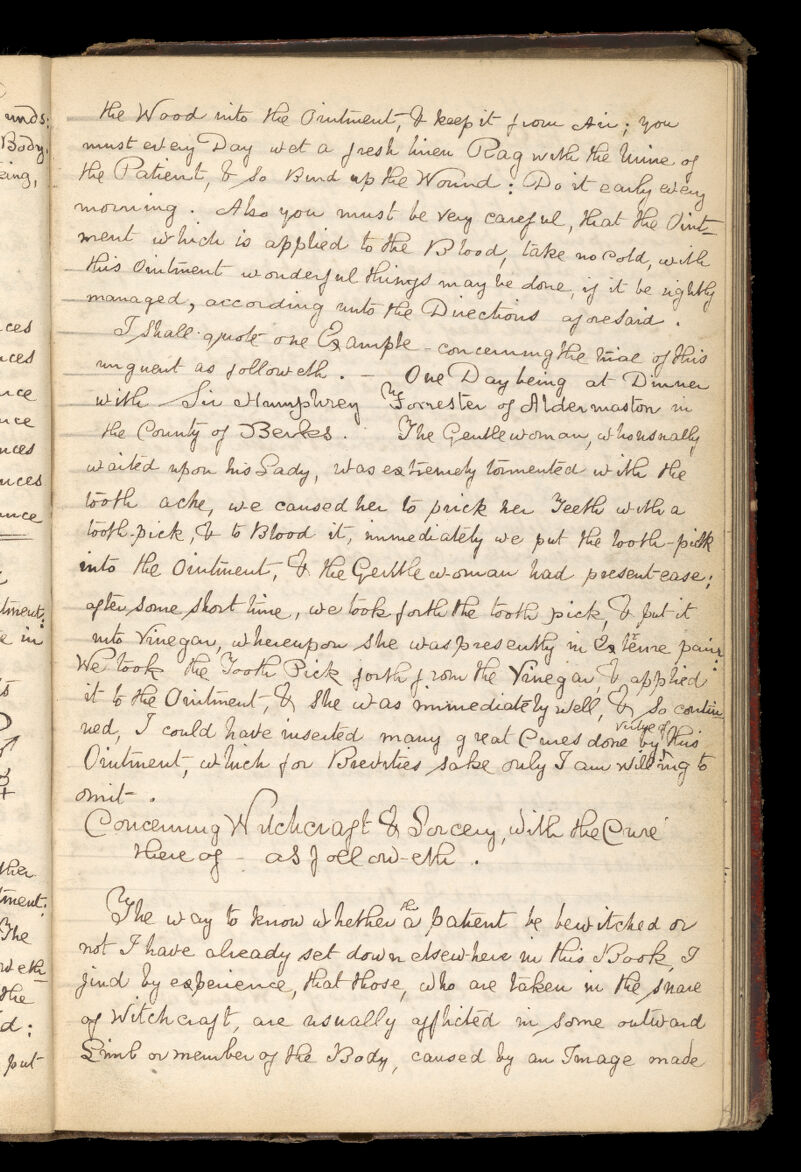 the Wood into the Ointment, & keep it from Air; you
must every Day wet a fresh linen Rag with the Urine of
the Patient, & so Bind up the Wound: Do it early every
morning. Also you must be very careful, that the Oint-
ment which is applied to the Blood, take no cold, with
this Ointment wonderful things may be done, if it be rightly
managed, according unto the Directions aforesaid.
I shall quote one Example - concerning the trial of this
unguent as followeth. - One Day being at Dinner
with Sir Humphrey Forrester of Aldermaston in
the County of Berks. The Gentlewoman, who usually
waited upon his Lady, was extremely tormented with the
tooth ache, we caused her to prick her Teeth with a
tooth-pick, & to Blood it, immediately we put the tooth-pick
into the Ointment, & the Gentlewoman had present ease;
after some short time, we took forth the tooth pick, & put it
into Vinegar, whereupon she was presently in Extreme pain.
We took the Tooth Pick forth from the Vinegar, & applied
it to the Ointment, & she was immediately well, & so contin-
ued, I could have inserted many great Cures done by virtue of this
Ointment, which for Brevities sake only I am willing to
omit.
Concerning Witchcraft & Sorcery, with the Cure
there of - as follow-eth.
The way to know whether the a patient be bewitched or
not I have already set down elsewhere in this Book, I
find by experience, that those, who are taken in the snare
of Witchcraft, are usually afflicted in some outward
Limb or member of the Body, caused by an Image made
unds:
Body,
eing,
ces
nces
nce
nce
nces
nces
ance
tment:
e in
ther
tment:
The
weth
the
d:
put